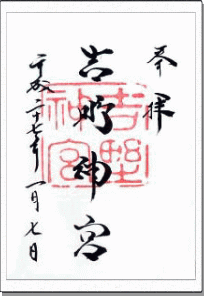 奉拝
吉野神宮
平成二十七年一月七日
吉野神宮